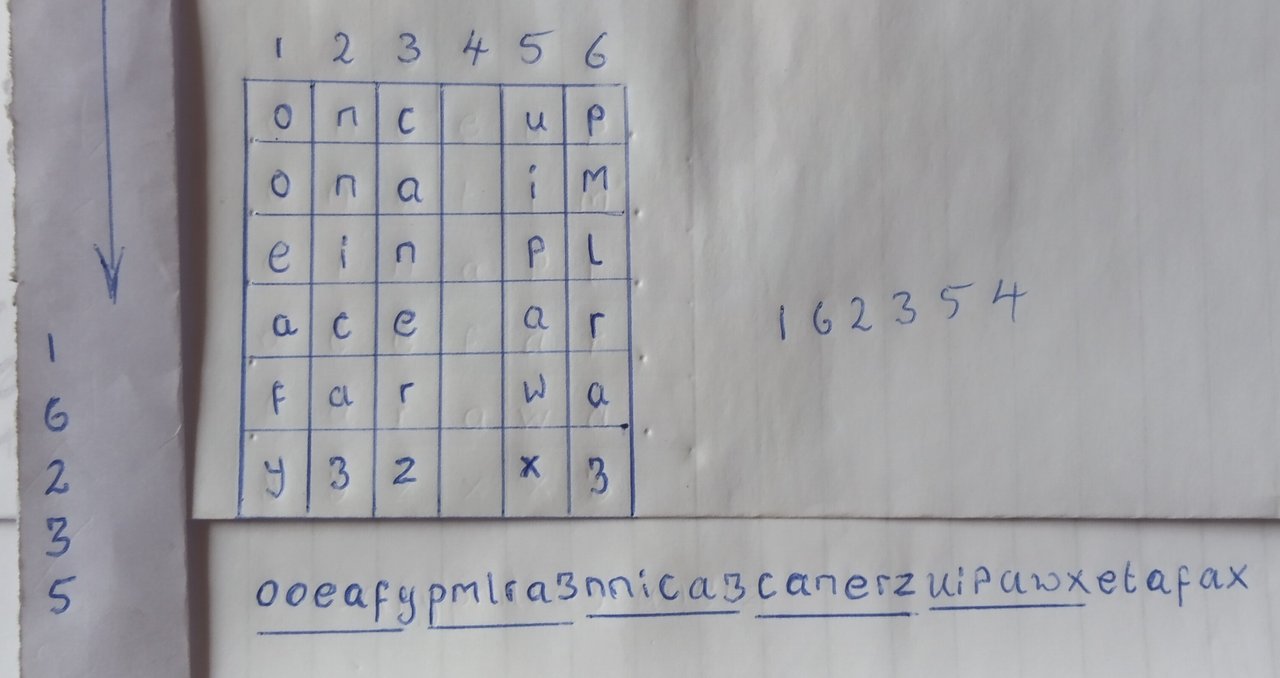 1 2 3 4 5 6
o n c u p
o n a i m
e i n p l
a c e a r
f a r w a
y 3 z x 3
1 6 2 3 5 4
1
6
2
3
5
ooeafypmlra3nnica3canerzuipawxetafax